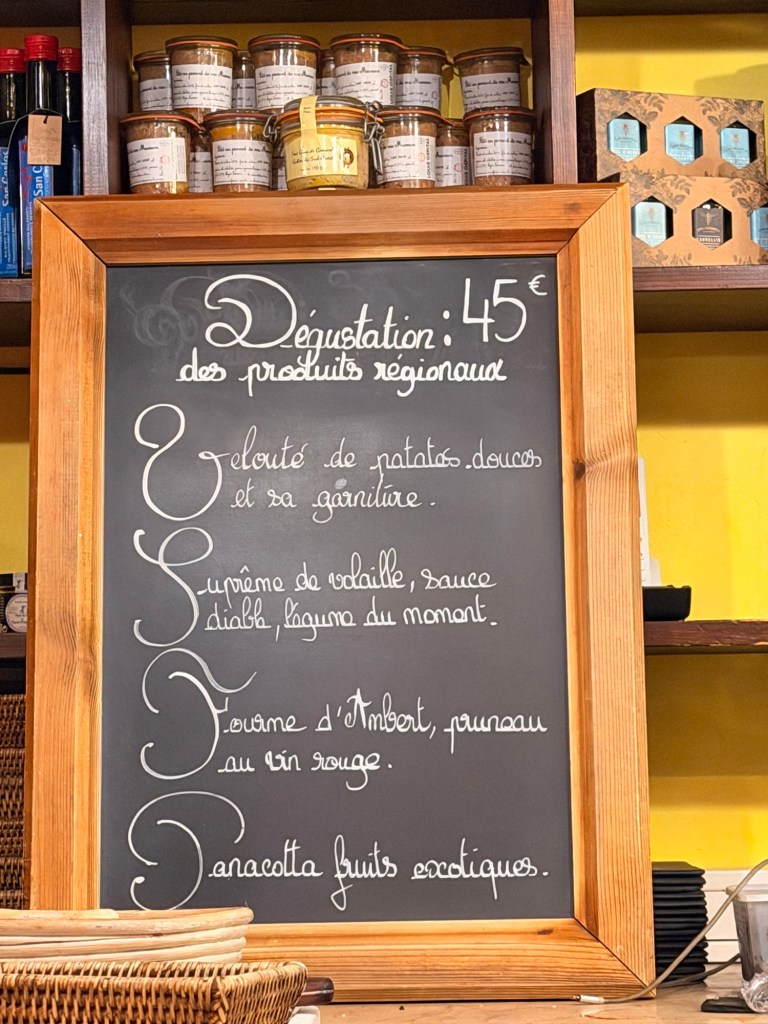 Dégustation : 45€
des produits régionaux
Velouté de patates douces
et sa garniture.
Suprême de volaille, sauce
diable, légume du moment.
Fourme d'Ambert, pruneau
au vin rouge.
Panacotta fruits exotiques.